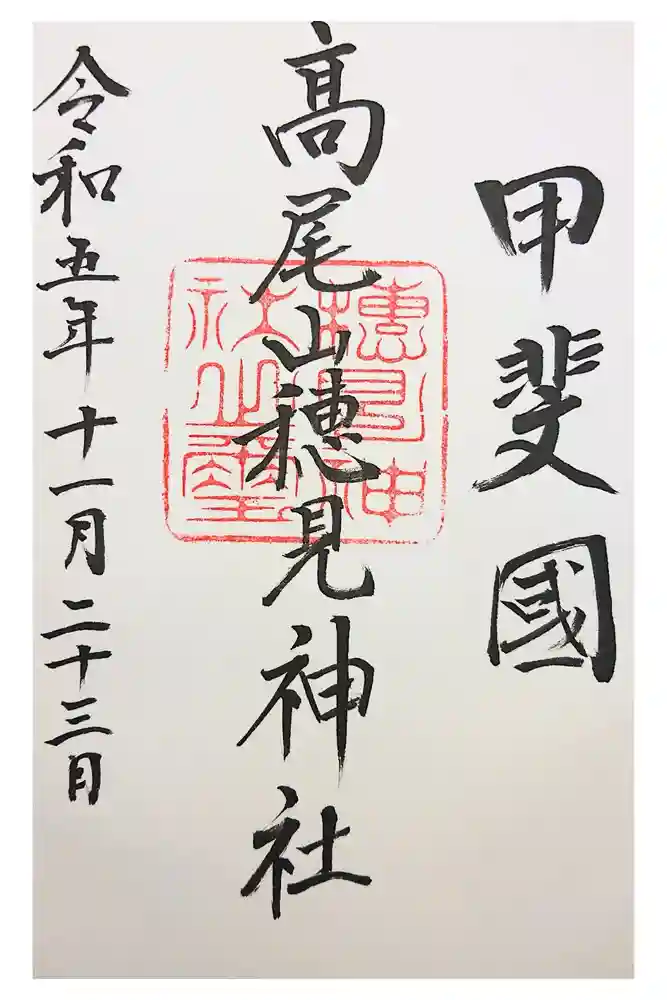 甲斐國
髙尾山穂見神社
穂見神社之璽
令和五年十一月二十三日